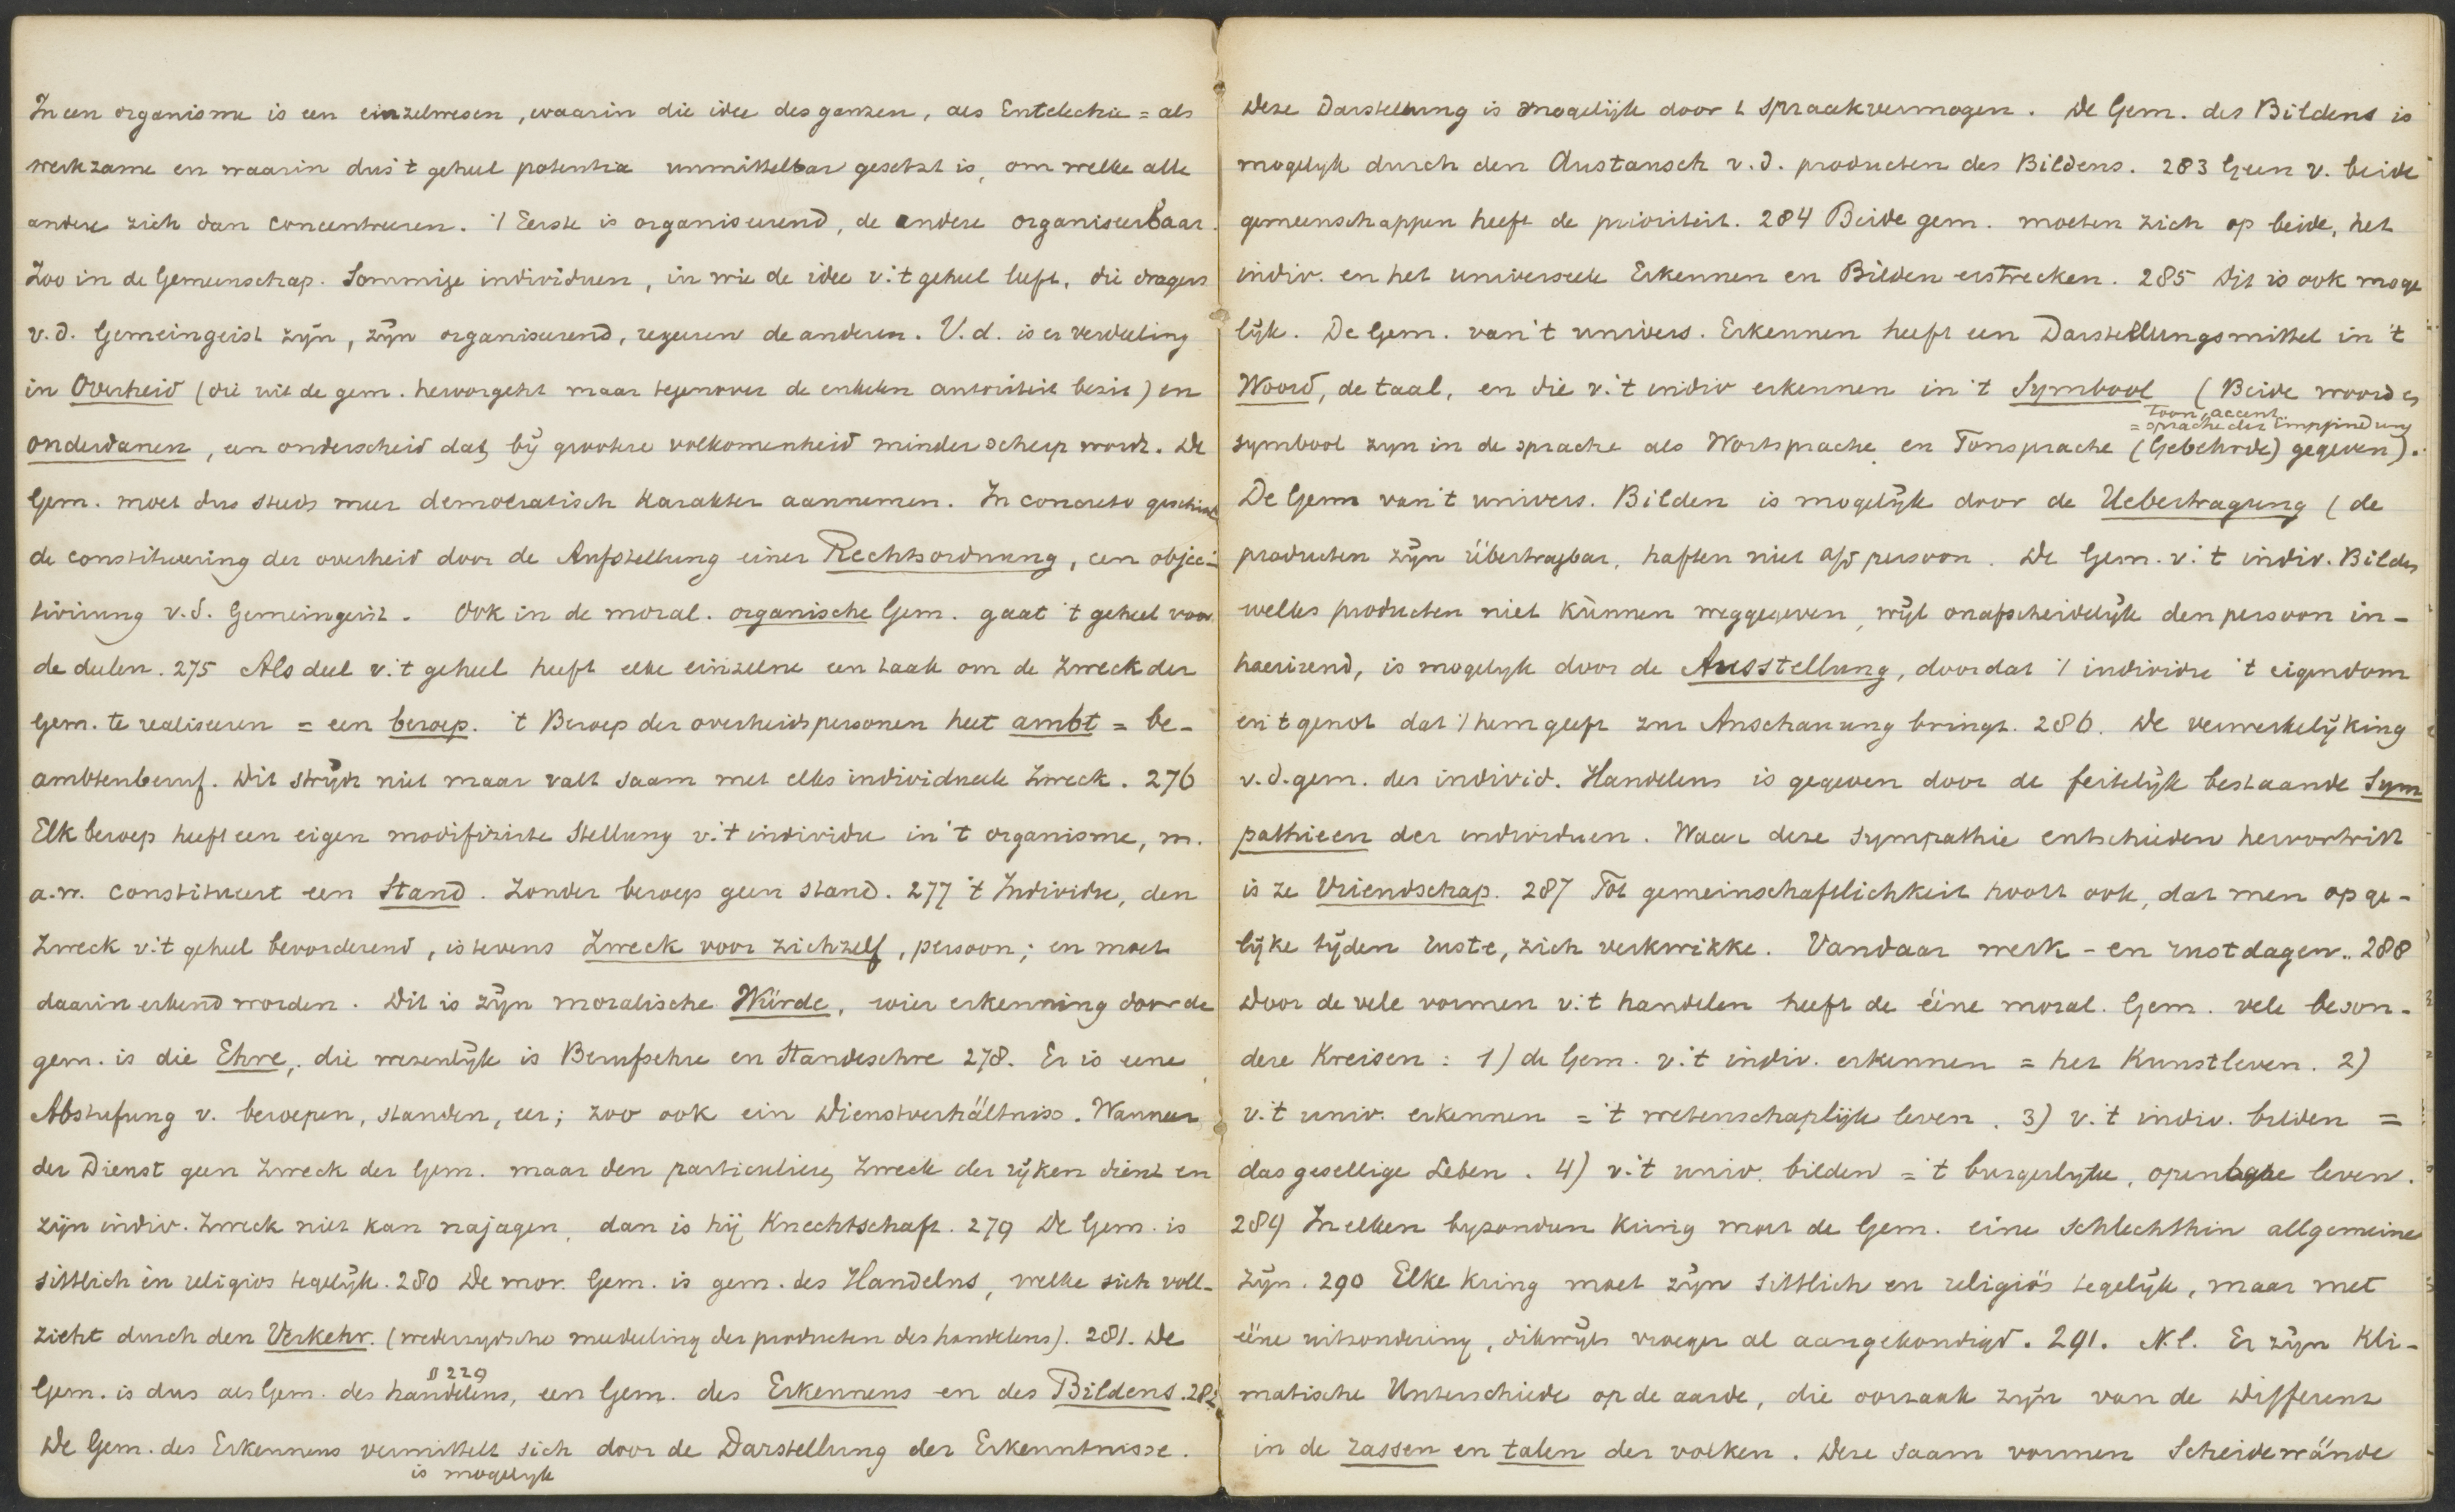 In een organisme is een einzelwesen, waarin die idee des ganzen, als Entelechie = als
werkzame en waarin dus 't geheel potentia unmittelbar gesetzt is, om welke alle
andere zich dan concentreeren. 't Eerste is organiseerend, de andere organiseerbaar.
Zoo in de Gemeenschap. Sommige individuen, in wie de idee v. 't geheel leeft, die dragers
v. d. Gemeingeist zijn, zijn organiseerend, regeeren de anderen. V. d. is er verdeeling
in Overheid (die uit de gem. hervorgeht maar tegenover de enkelen autoriteit bezit) en
onderdanen, een onderscheid dat, bij grootere volkomenheid minder scherp wordt. De
Gem. moet dus steeds meer democratisch karakter aannemen. In concreto geschiedt
de constitueering der overheid door de Aufstellung einer Rechtsordnung, een objec-
tivirung v. d. Gemeingeist. Ook in de moral. organische Gem. gaat 't geheel voor
de deelen. 275 Als deel v. 't geheel heeft elke einzelne een taak om de Zweck der
Gem. te realiseeren = een beroep. 't Beroep der overheidspersonen heet ambt = be-
ambtenberuf. Dit strijdt niet maar valt saam met elks individueele Zweck. 276
Elk beroep heeft een eigen modifizirte Stellung v. 't individu in 't organisme, m.
a. w. constitueert een Stand. Zonder beroep geen stand. 277 't Individu, den
Zweck v. 't geheel bevorderend, is tevens Zweck voor zichzelf, persoon; en moet
daarin erkend worden. Dit is zijn moralische Würde, wier erkenning door de
gem. is die Ehre, die wezenlijk is Berufsehre en Standesehre 278. Er is eene
Abstufung v. beroepen, standen, eer; zoo ook ein Dienstverhältniss. Wanneer
der Dienst geen Zweck der Gem. maar den particuliere Zweck der rijken dient en
zijn indiv. Zweck niet kan najagen, dan is hij Knechtschaft. 279 De Gem. is
sittlich en religios tegelijk. 280 De mor. Gem. is gem. des Handelns, welke sich voll-
zieht durch den Verkehr. (wederzijdsche mededeeling der producten des handelens). 281. De
§ 229
Gem. is dus als Gem. des handelens, een Gem. des Erkennens en des Bildens. 282
De Gem. des Erkennens vermittelt sich door de Darstellung der Erkenntnisse.
is mogelijk
Deze Darstellung is mogelijk door 't spraakvermogen. De Gem. des Bildens is
mogelijk durch den Austausch v. d. producten des Bildens. 283 Geen v. beide
gemeenschappen heeft de prioriteit. 284 Beide gem. moeten zich op beide, het
indiv. en het universeele Erkennen en Bilden erstrecken. 285 Dit is ook moge
lijk. De Gem. van 't univers. Erkennen heeft een Darstellungsmittel in 't
Woord, de taal, en die v. 't indiv erkennen in 't Symbool (Beide woord en
toon, accent
= sprache der Empfindung
symbool zijn in de sprache als Wortsprache en Tonsprache (Gebehrde) gegeven).
De Gem van 't univers. Bilden is mogelijk door de Uebertragung (de
producten zijn übertragbar, haften niet a/d persoon. De Gem. v. 't indiv. Bilden
welks producten niet kùnnen weggegeven, wijl onafscheidelijk den persoon in-
haerirend, is mogelijk door de Ausstellung, doordat 't individu 't eigendom
en 't genot dat 't hem geeft zur Anschauung bringt. 286. De verwerkelijking
v. d. gem. des individ. Handelens is gegeven door de feitelijk bestaande Sym
pathieen der individuen. Waar deze sympathie entschieden hervortritt
is ze Vriendschap. 287 Tot gemeinschaftlichkeit hoort ook, dat men op ge-
lijke tijden ruste, zich verkwikke. Vandaar werk- en rustdagen. 288
Door de vele vormen v. 't handelen heeft de ééne moral. Gem. vele beson-
dere Kreisen: 1) de Gem. v. 't indiv. erkennen = het Kunstleven. 2)
v. 't univ. erkennen = 't wetenschaplijk leven. 3) v. 't indiv. bilden =
das gesellige Leben. 4) v. 't univ. bilden = 't burgerlijke, openbare leven.
289 In elken byzonderen kring moet de Gem. eine schlechthin allgemeine
zijn. 290 Elke kring moet zijn sittlich en religiös tegelijk, maar met
ééne uitzondering, dikwijls vroeger al aangekondigd. 291. N.l. Er zijn kli-
matische Unterschiede op de aarde, die oorzaak zijn van de Differenz
in de rassen en talen der volken. Deze saam vormen Scheidewände